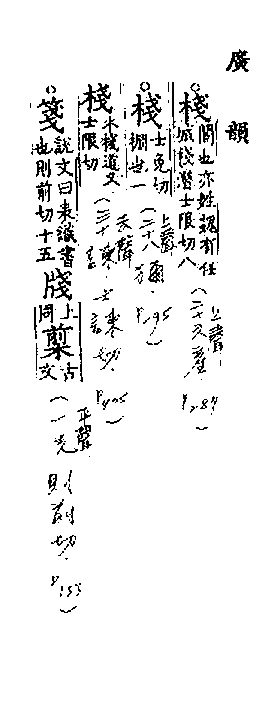 廣韻
棧 閣也亦姓魏有任城棧潛士限切八 上聲(二十六產 P.287)
棧 士免切棚也一 上聲(二十八獮 P.295)
棧 木棧道又士限切 去聲(三十諫 士諫切 P.405)
箋 說文曰表識書也則前切十五 牋 上同 䉍 古文 平聲(一先 則前切 P.133)